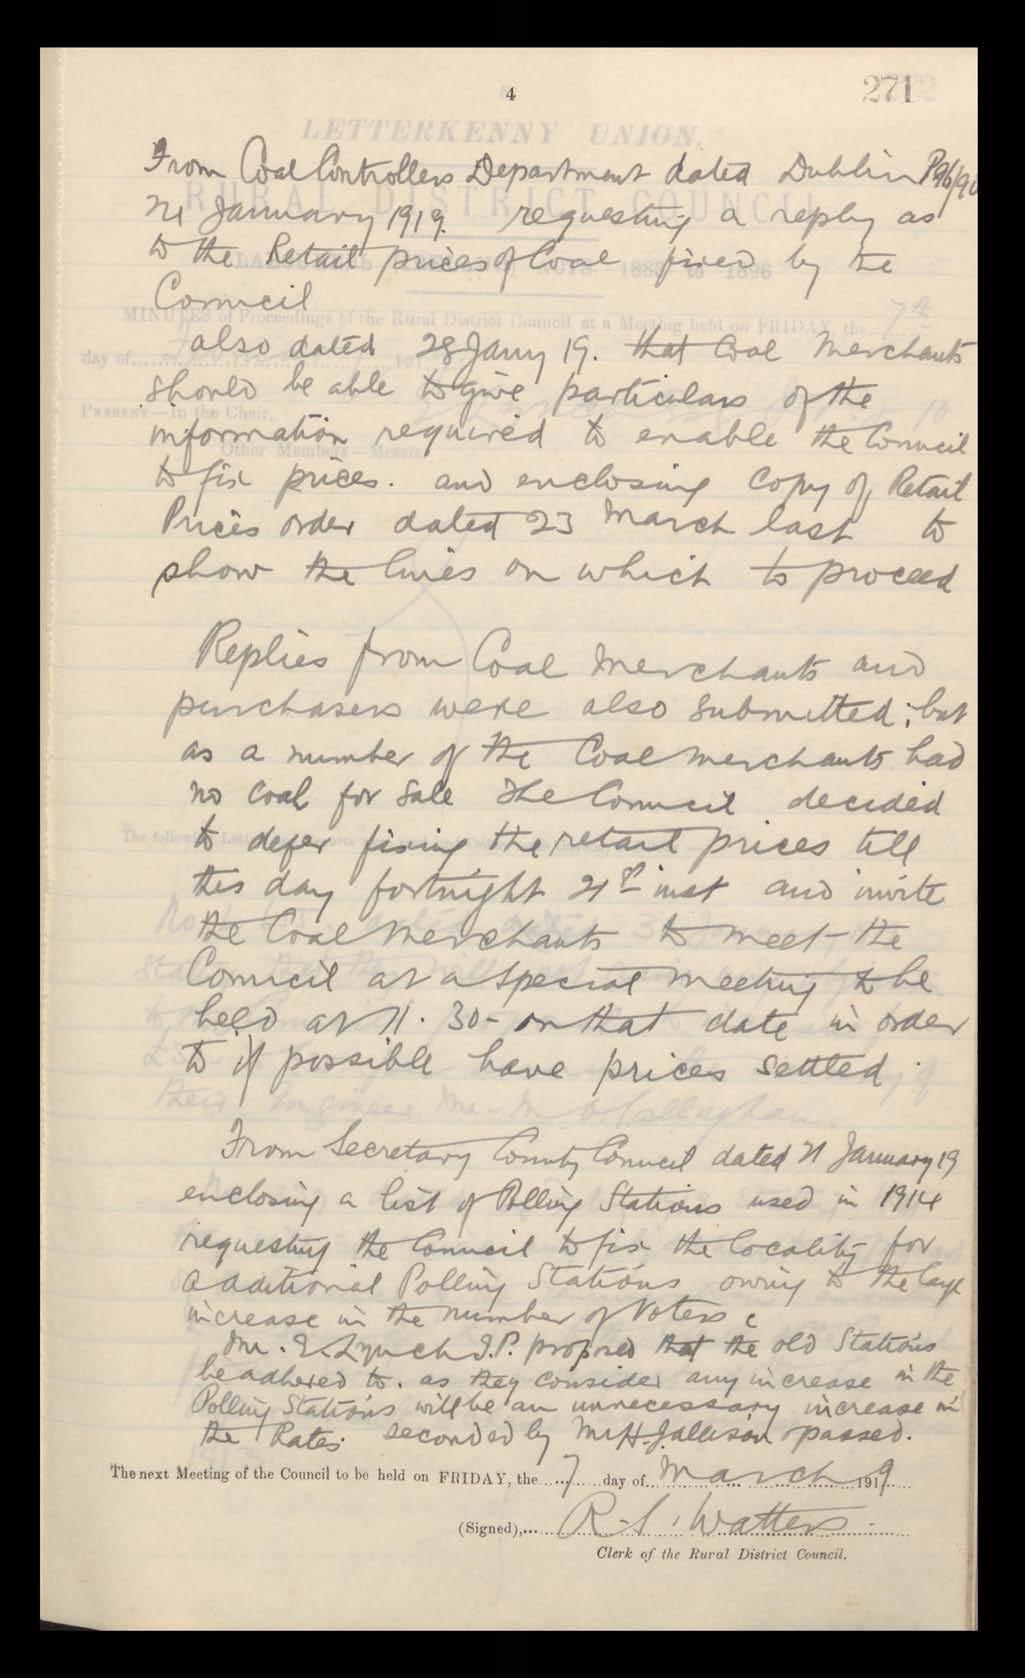 4
271
From Coal Controllers Department dated Dublin
21 January 1919. requesting a reply as
to the Retail prices of Coal fixed by the
Council
also dated 28 Jany 19. that Coal Merchants
should be able to give particulars of the
information required to enable the Council
to fix prices. and enclosing Copy of Retail
Prices order dated 23 March last to
show the lines on which to proceed
Replies from Coal Merchants and
purchasers were also submitted; but
as a number of the Coal merchants had
no coal for Sale The Council decided
to defer fixing the retail prices till
this day fortnight 21st inst and invite
the Coal Merchants to meet the
Council at a Special Meeting to be
held at 11.30 - on that date in order
to if possible have prices settled.
From Secretary County Council dated 21 January 19
enclosing a list of Polling Stations used in 1914
requesting the Council to fix the locality for
additional Polling Stations owing to the large
increase in the number of Voters
Mr. E. Lynch J.P. proposed that the old Stations
be adhered to. as they consider any increase in the
Polling Stations will be an unnecessary increase in
the Rates. seconded by Mr H. Jallison passed.
The next Meeting of the Council to be held on FRIDAY, the 7 day of March 1919
(Signed), R. S. Watters
Clerk of the Rural District Council.